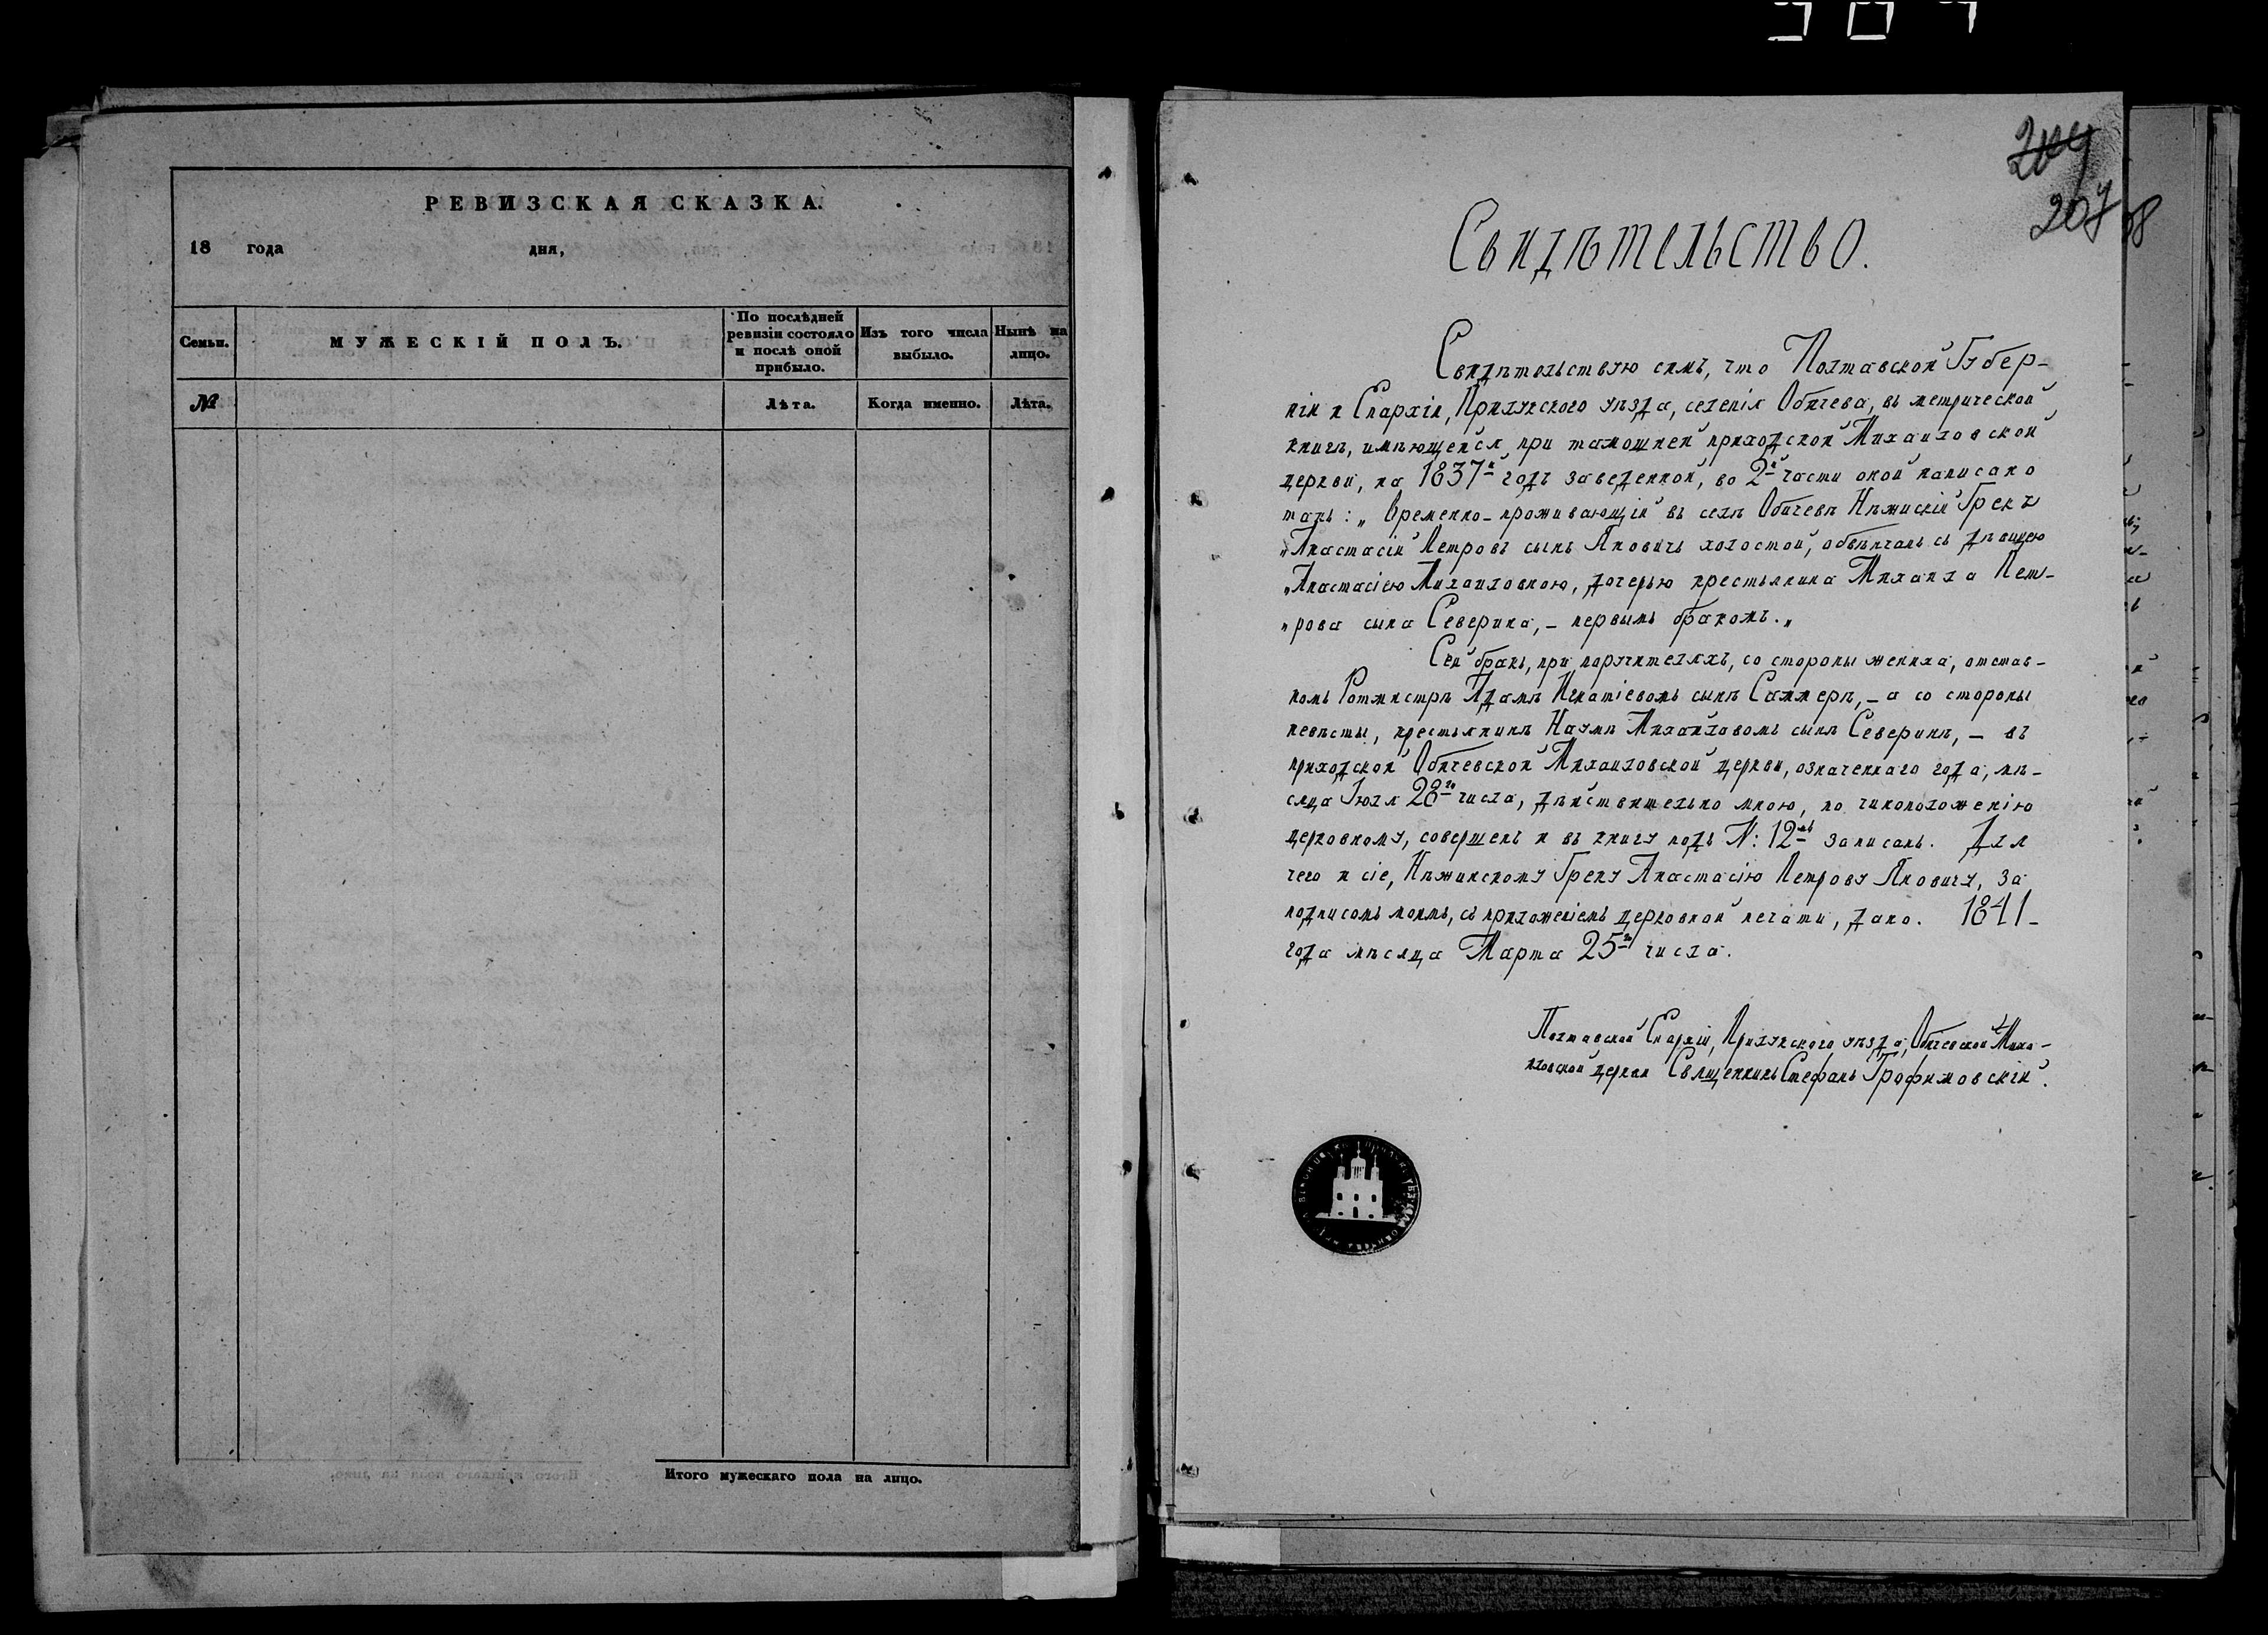 РЕВИЗСКАЯ СКАЗКА.
18 года дня,
Семьи.
МУЖЕСКІЙ ПОЛЪ.
По послѣдней
ревизіи состояло
и послѣ оной
прибыло.
Изъ того числа
выбыло.
Нынѣ на
лицо.
№
Лѣта.
Когда именно.
Лѣта.
Итого мужескаго пола на лицо.
204
207
Свидѣтельство.
Свидѣтельствую симъ, что Полтавской Губер-
ніи и Епархіи, Прилукского уѣзда, селенія Обичева, въ метрической
книгѣ, имѣющейся при тамошней приходской Михаиловской
церкви, на 1837й годъ заведенной, во 2й части оной написано
такъ: „Временно-проживающій въ селѣ Обичевѣ Нѣжискій Грекъ
„Анастасій Петровъ сынъ Яновичъ холостой, обвѣнчанъ съ дѣвицею
„Анастасіею Михаиловною, дочерью крестьянина Михаила Пет-
„рова сына Северина, - первымъ бракомъ.„
Сей бракъ, при поручителяхъ, со стороны жениха, отстав-
номъ Ротмистрѣ Адамѣ Игнатіевомъ сынѣ Саммерѣ, - а со стороны
невѣсты, крестьянинѣ Наумѣ Михайловомъ сынѣ Северинѣ, - въ
приходской Обичевской Михаиловской церкви, означеннаго года, мѣ-
сяца Іюля 28го числа, дѣйствительно мною, по чиноположенію
церковному, совершенъ и въ книгу подъ N: 12мъ записанъ. Для
чего и сіе, Нѣжинскому Греку Анастасію Петрову Яновичу, за
подписомъ моимъ, съ приложеніемъ церковной печати, дано. 1841-
года мѣсяца Марта 25го числа.
Полтавской Епархіи, Прилукского уѣзда, Обичевской Миха-
иловской церкви Священникъ Стефанъ Трофимовскій.